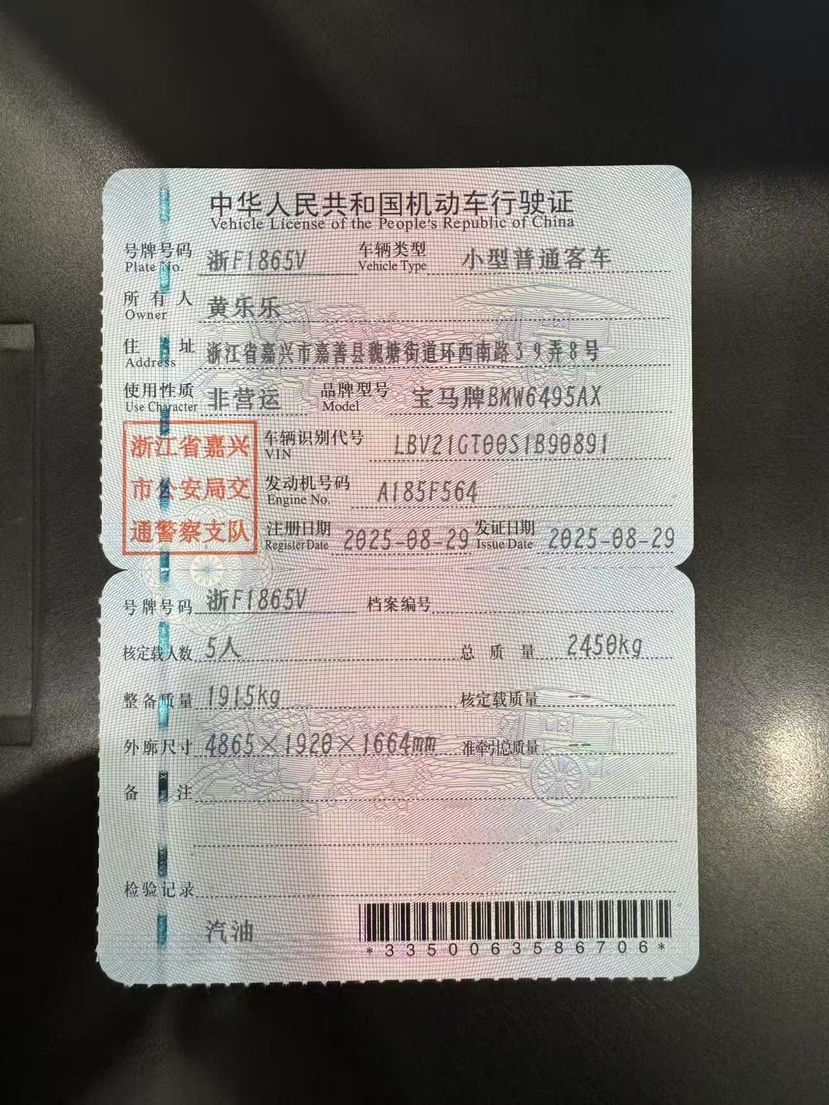 中华人民共和国机动车行驶证
Vehicle License of the People's Republic of China
号牌号码 浙F1865V 车辆类型 小型普通客车
Plate No. Vehicle Type
所有人 黄乐乐
Owner
住址 浙江省嘉兴市嘉善县魏塘街道环西南路39弄8号
Address
使用性质 非营运 品牌型号 宝马牌BMW6495AX
Use Character Model
浙江省嘉兴
市公安局交
通警察支队
车辆识别代号 LBV21GT00S1B90891
VIN
发动机号码 A185F564
Engine No.
注册日期 2025-08-29 发证日期 2025-08-29
Register Date Issue Date
号牌号码 浙F1865V 档案编号
核定载人数 5人 总质量 2450kg
整备质量 1915kg 核定载质量 --
外廓尺寸 4865×1920×1664mm 准牵引总质量 --
备注
检验记录
汽油
*3350063586706*